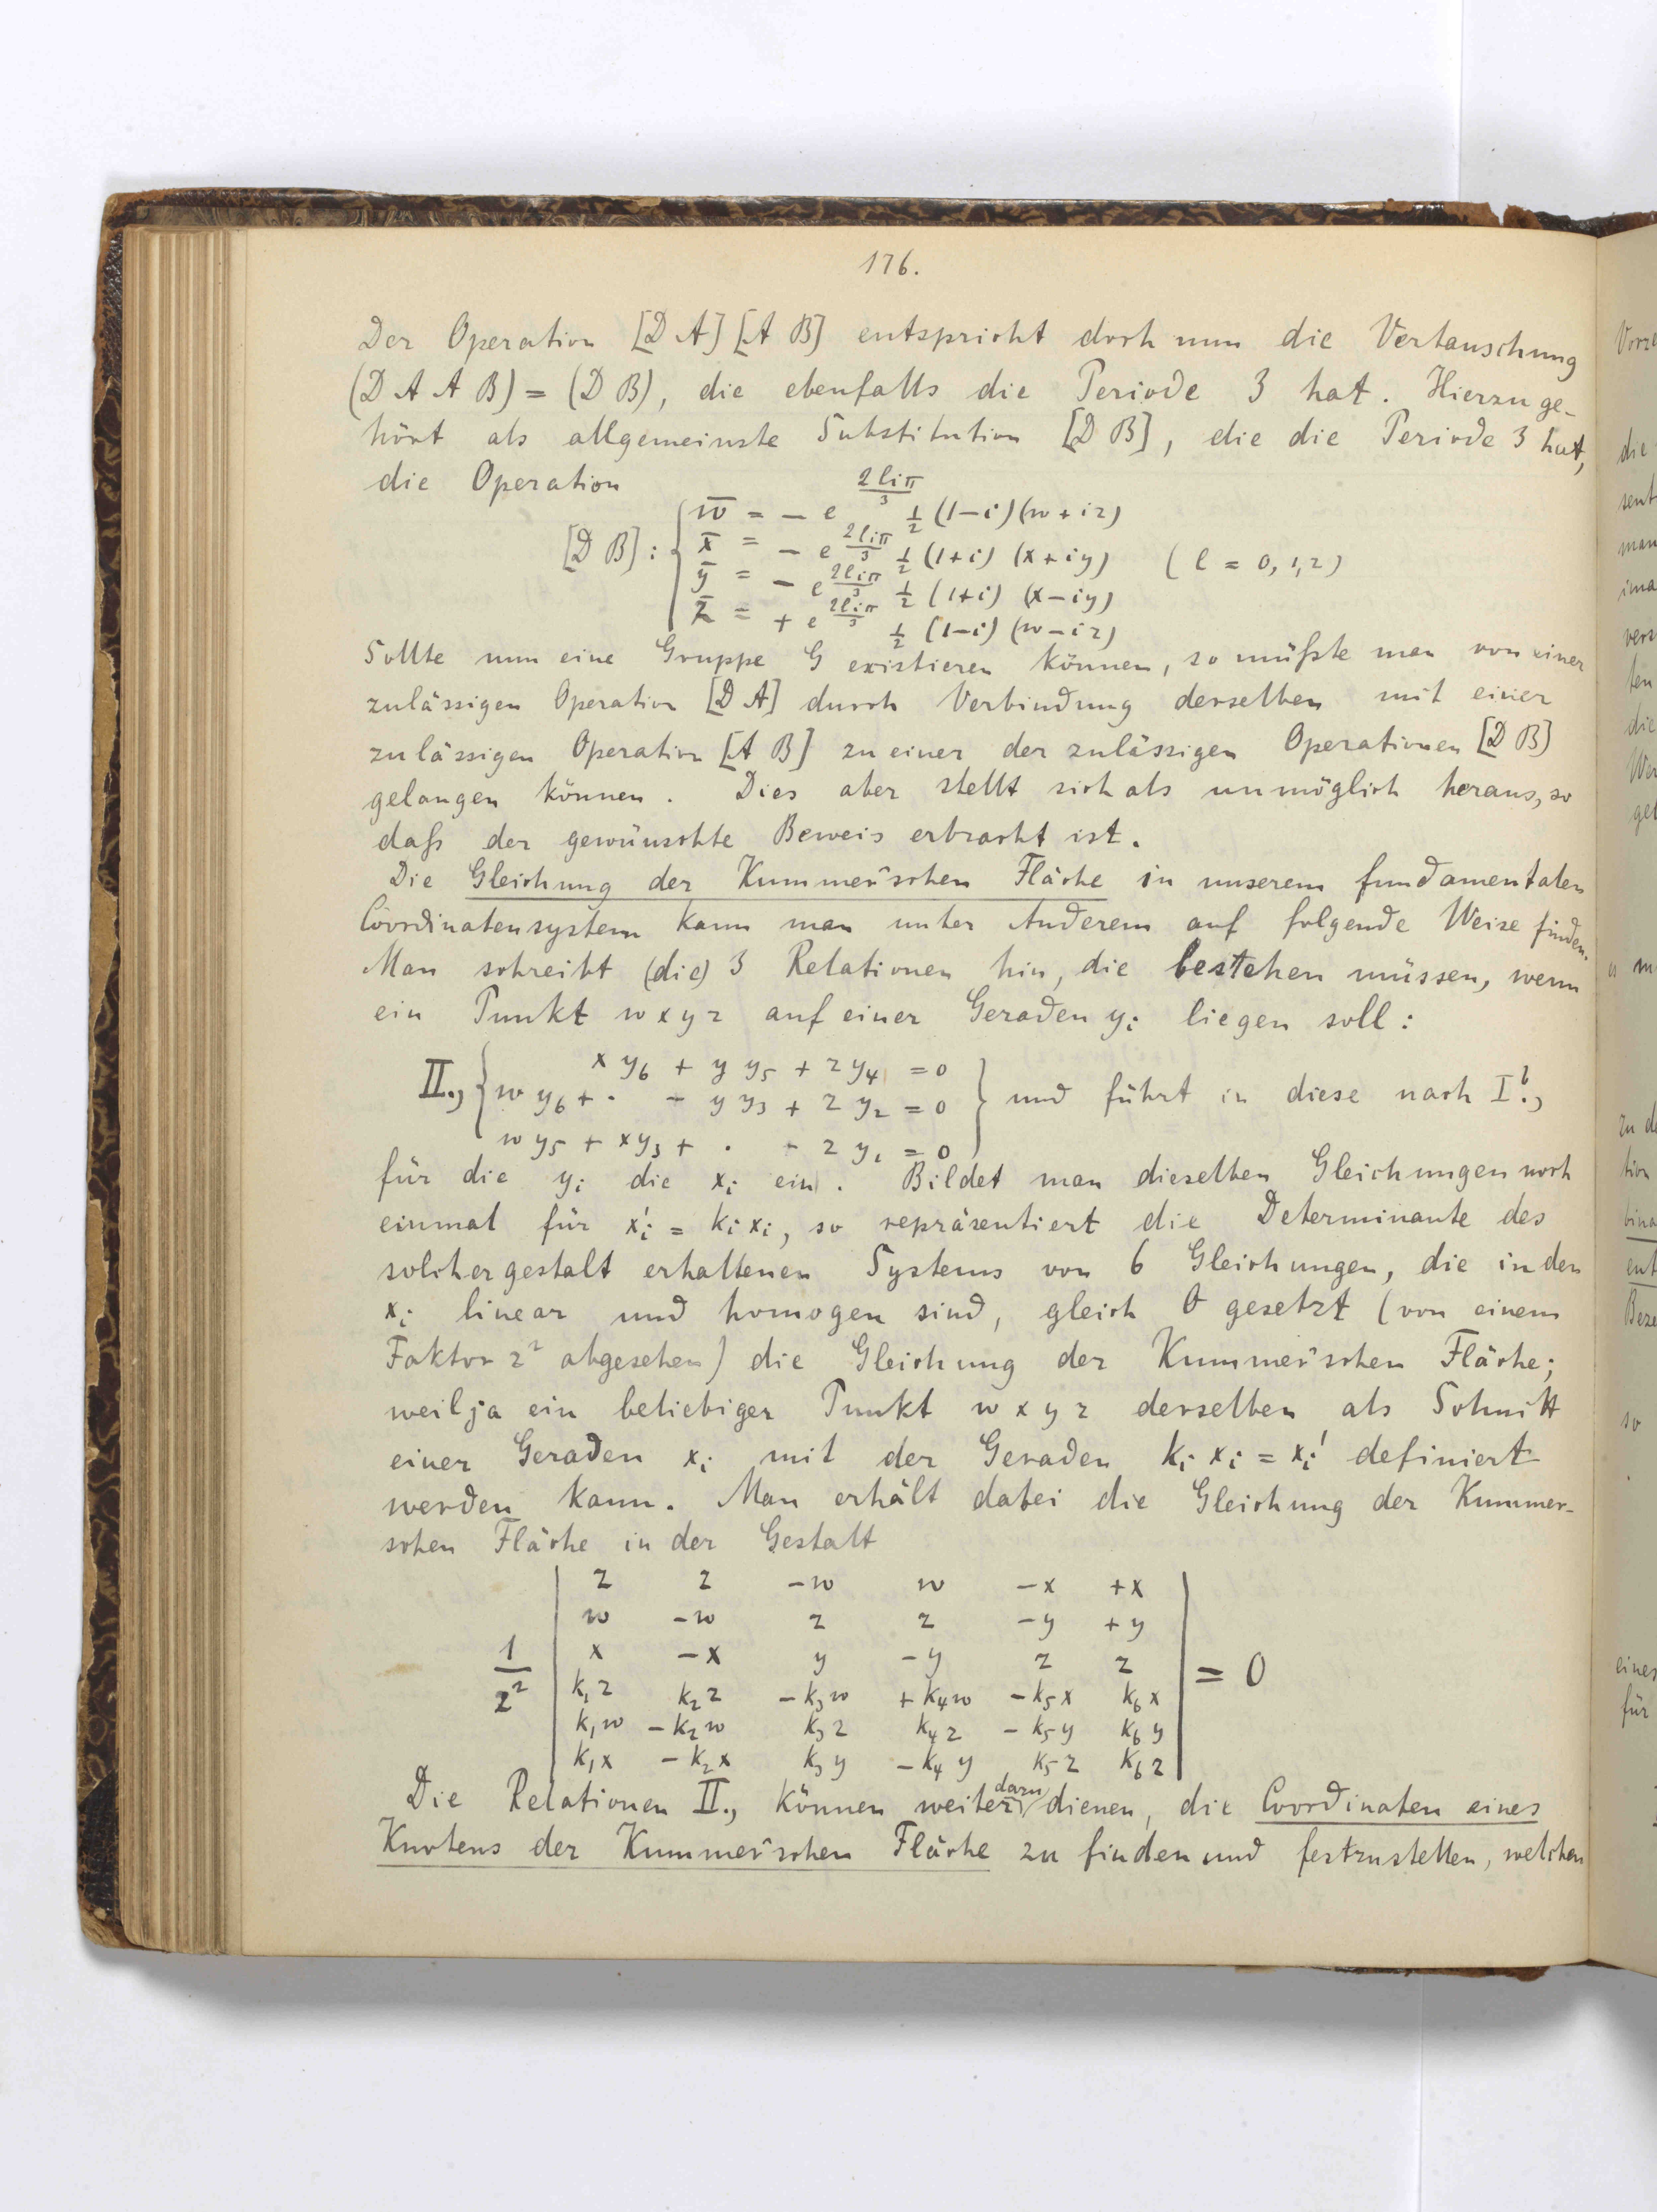 176.
Der Operation [D A] [A B] entspricht doch nun die Vertauschung
(D A A B) = (D B), die ebenfalls die Periode 3 hat. Hierzu ge-
hört als allgemeinste Substitution [D B], die die Periode 3 hat,
die Operation
[D B]: { w̄ = − e^{2liπ/3} ½ (1−i) (w + iz)
x̄ = − e^{2liπ/3} ½ (1+i) (x + iy) (l = 0, 1, 2)
ȳ = − e^{2liπ/3} ½ (1+i) (x − iy)
z̄ = + e^{2liπ/3} ½ (1−i) (w − iz)
Sollte nun eine Gruppe G existieren können, so müßte man von einer
zulässigen Operation [D A] durch Verbindung derselben mit einer
zulässigen Operation [A B] zu einer der zulässigen Operationen [D B]
gelangen können. Dies aber stellt sich als unmöglich heraus, so
daß der gewünschte Beweis erbracht ist.
Die Gleichung der Kummer'schen Fläche in unserem fundamentalen
Coordinatensystem kann man unter Anderem auf folgende Weise finden.
Man schreibt (die) 3 Relationen hin, die bestehen müssen, wenn
ein Punkt w x y z auf einer Geraden y_i liegen soll:
x y₆ + y y₅ + z y₄ = 0
II., { w y₆ + · − y y₃ + z y₂ = 0 } und führt in diese nach I^b.,
w y₅ + x y₃ + · − z y₁ = 0
für die y_i die x_i ein. Bildet man dieselben Gleichungen noch
einmal für x'_i = k_i x_i, so repräsentiert die Determinante des
solchergestalt erhaltenen Systems von 6 Gleichungen, die in den
x_i linear und homogen sind, gleich 0 gesetzt (von einem
Faktor z² abgesehen) die Gleichung der Kummer'schen Fläche;
weil ja ein beliebiger Punkt w x y z derselben als Schnitt
einer Geraden x_i mit der Geraden k_i x_i = x_i' definiert
werden kann. Man erhält dabei die Gleichung der Kummer-
schen Fläche in der Gestalt
z z −w w −x +x
w −w z z −y +y
x −x y −y z z
1/z² k₁z k₂z −k₃w +k₄w −k₅x k₆x = 0
k₁w −k₂w k₃z k₄z −k₅y k₆y
k₁x −k₂x k₃y −k₄y k₅z k₆z
Die Relationen II., können weiter dazu dienen, die Coordinaten eines
Knotens der Kummer'schen Fläche zu finden und festzustellen, welchen